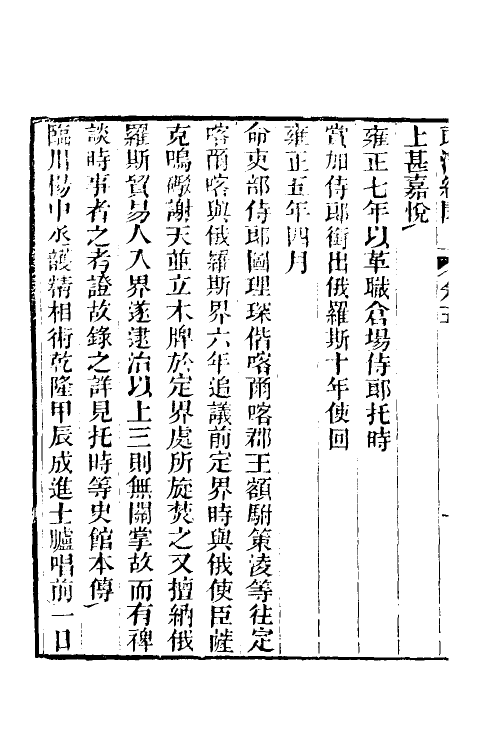 上甚嘉悅
雍正七年以革職倉場侍郎托時
賞加侍郎銜出俄羅斯十年使回
雍正五年四月
命吏部侍郎圖理琛偕喀爾喀郡王額駙策淩等往定
喀爾喀與俄羅斯界六年追議前定界時與俄使臣薩
克鳴礮謝天並立木牌於定界處所旋焚之又擅納俄
羅斯貿易人入界遂逮治以上三則無關掌故而有裨
談時事者之考證故錄之詳見托時等史館本傳
臨川楊中丞護精相術乾隆甲辰成進士臚唱前一日